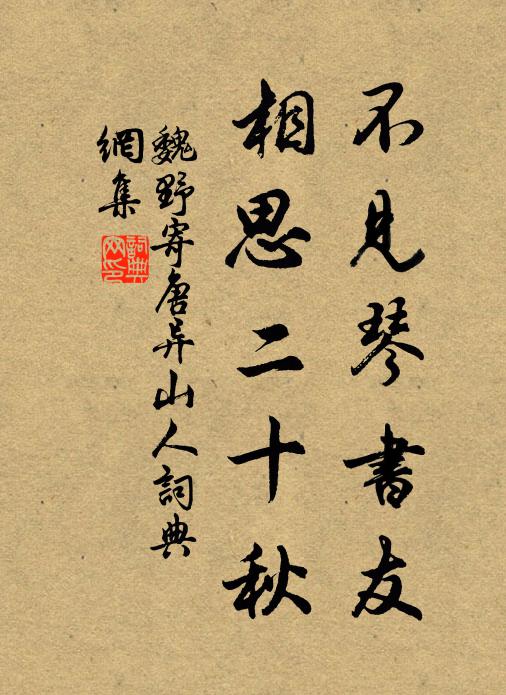 不見琴書友
相思二十秋
魏野寄唐异山人詞典
網集
詞典
网印